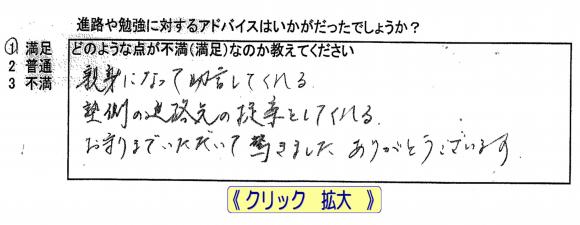 進路や勉強に対するアドバイスはいかがだったでしょうか？
① 満足
2 普通
3 不満
どのような点が不満(満足)なのか教えてください
親身になって助言してくれる
塾側の進路先の提案としてくれる
お守りまでいただいて驚きました ありがとうございます
《 クリック 拡大 》